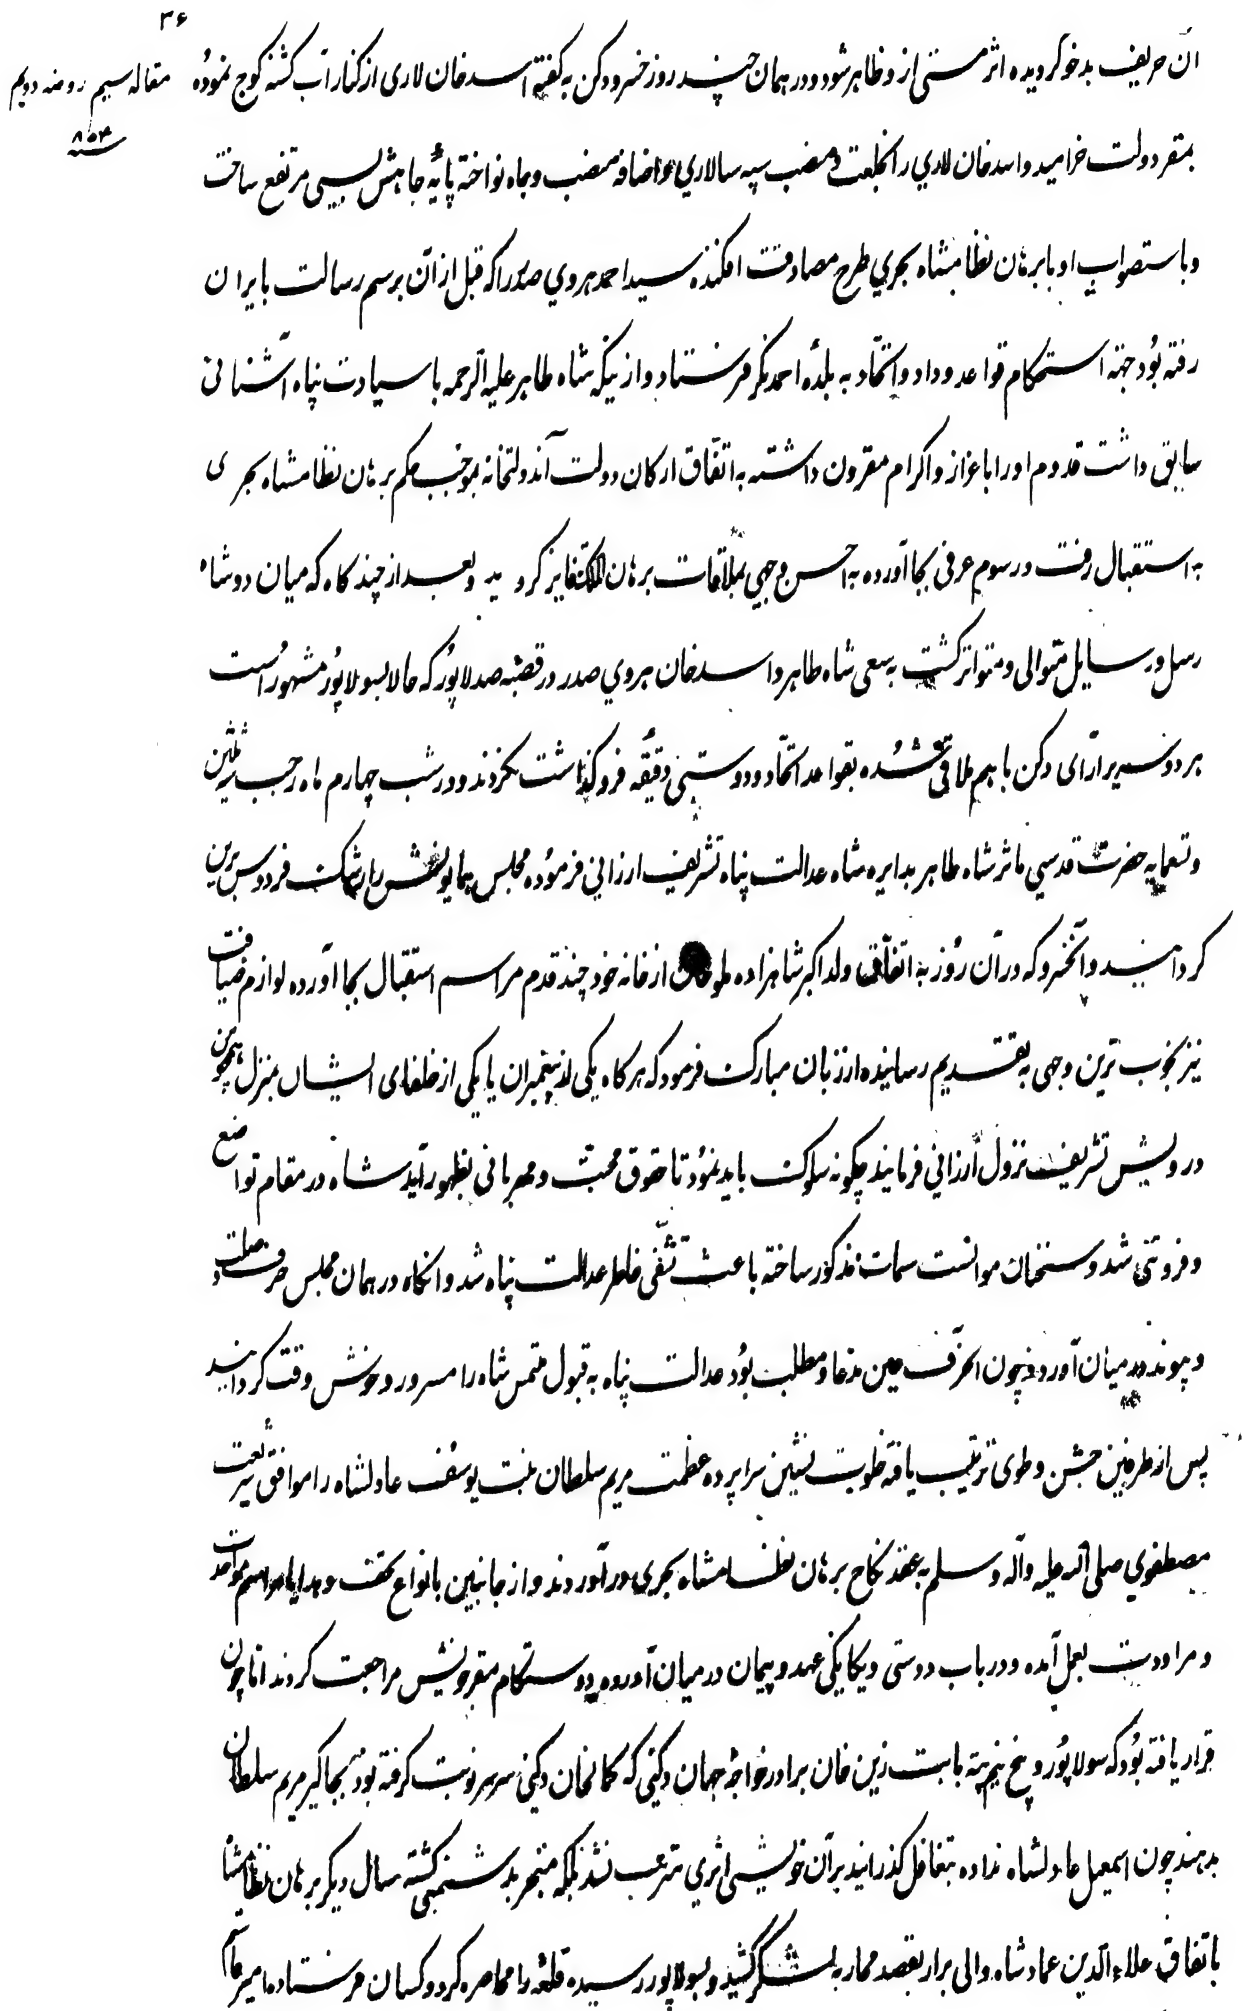 ۳۶
مقاله سیم روضه دویم
۸۵۴
آن حریف بدخو گردیده اثر مستی ازو ظاهر شود و در همان چند روز خسرو دکن به گفته اسد خان لاری از کنار آب کشنه کوچ نموده
بمقر دولت خرامید و اسد خان لاری را بخلعت و منصب سپه سالاری و اضافه منصب و جاه نواخته پایه جاهش بسی مرتفع ساخت
و باستصواب او با برهان نظامشاه بحری طرح مصادقت افکنده سید احمد هروی صدر را که قبل ازان برسم رسالت بایران
رفته بود جهة استحکام قواعد وداد و اتحاد به بلده احمدنگر فرستاد و از بسکه شاه طاهر علیه الرحمه با سیادت پناه آشنائی
سابق داشت قدوم او را با عزاز و اکرام مقرون داشته به اتفاق ارکان دولت آندولتخانه بموجب حکم برهان نظامشاه بحری
به استقبال رفت و رسوم عرفی بجا آورده به احسن وجهی بملاقات برهان الملک فایز گردید و بعد از چند گاه که میان دو شاه
رسل و رسایل متوالی و متواتر گشت به سعی شاه طاهر و اسد خان هروی صدر در قصبه صدلاپور که حالا بسولاپور مشهور است
هر دو سریر آرای دکن با هم ملاقی شده بقواعد اتحاد و دوستی دقیقه فروگذاشت نکردند و در شب چهارم ماه رجب سنه ثلثین
و تسعمایه حضرت قدسی ماثر شاه طاهر بدایره شاه عدالت پناه تشریف ارزانی فرموده مجلس همایونش را رشک فردوس برین
گردانید و آنخسرو که دران روز به اتفاق ولد اکبر شاهزاده ملوخان از خانه خود چند قدم مراسم استقبال بجا آورده لوازم ضیافت
نیز بخوب ترین وجهی به تقدیم رسانیده از زبان مبارک فرمود که هرگاه یکی از پیغمبران یا یکی از خلفای ایشان بمنزل همچو من
درویش تشریف نزول ارزانی فرمایند چگونه سلوک باید نمود تا حقوق محبت و مهربانی بظهور آید شاه در مقام تواضع
و فروتنی شد و سخنان موانست سمات مذکور ساخته باعث تشفی خاطر عدالت پناه شد و انگاه در همان مجلس حرف وصلت
و پیوند در میان آورد و چون آنحرف عین مدعا و مطلب بود عدالت پناه به قبول ملتمس شاه را مسرور و خوش وقت گردانید
پس از طرفین جشن و طوی ترتیب یافته خلوت نشین سراپرده عظمت مریم سلطان بنت یوسف عادلشاه را موافق شریعت
مصطفوی صلی الله علیه و آله و سلم به عقد نکاح برهان نظامشاه بحری در آوردند و از جانبین بانواع تحف و هدایا مراسم مواحدت
و مراودت بعمل آمده و در باب دوستی و یکایکی عهد و پیمان در میان آورده دوستکام بمقر خویش مراجعت کردند اما چون
قرار یافته بود که سولاپور و پنج نیم پته بابت زین خان برادر خواجه جهان دکنی که کمالخان دکنی سرسر نوبت گرفته بود بجاگیر مریم سلطان
بدهند چون اسمعیل عادلشاه نداده بتغافل گذرانید بران خویشی اثری مترتب نشد بلکه منجر بدشمنی گشته سال دیگر برهان نظامشاه
باتفاق علاءالدین عمادشاه والی برار بقصد محاربه لشکر کشید و بسولاپور رسیده قلعه را محاصره کرد و کسان فرستاده امیر قاسم